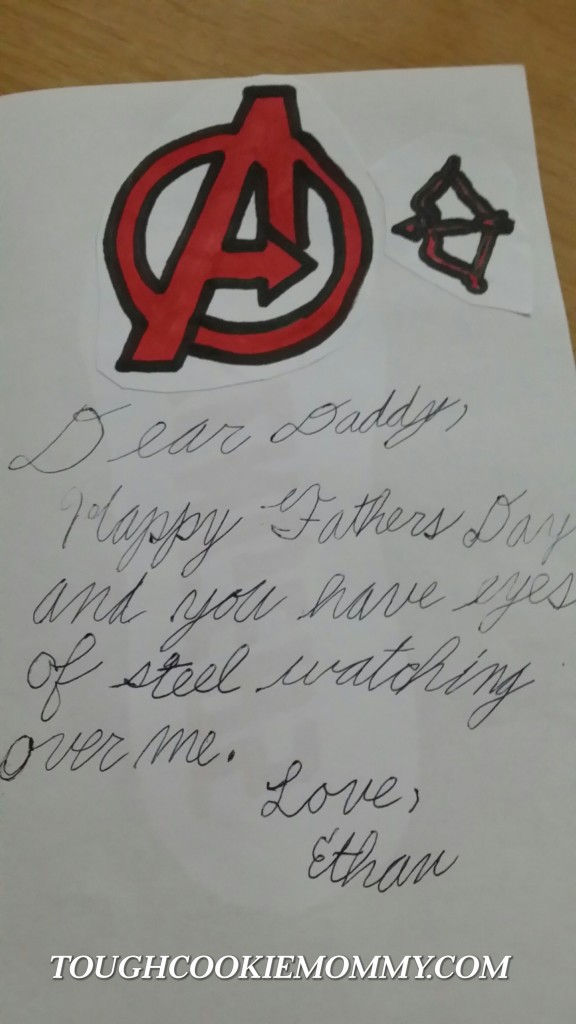 Dear Daddy,
Happy Fathers Day
and you have eyes
of steel watching
over me.
Love,
Ethan
TOUGHCOOKIEMOMMY.COM